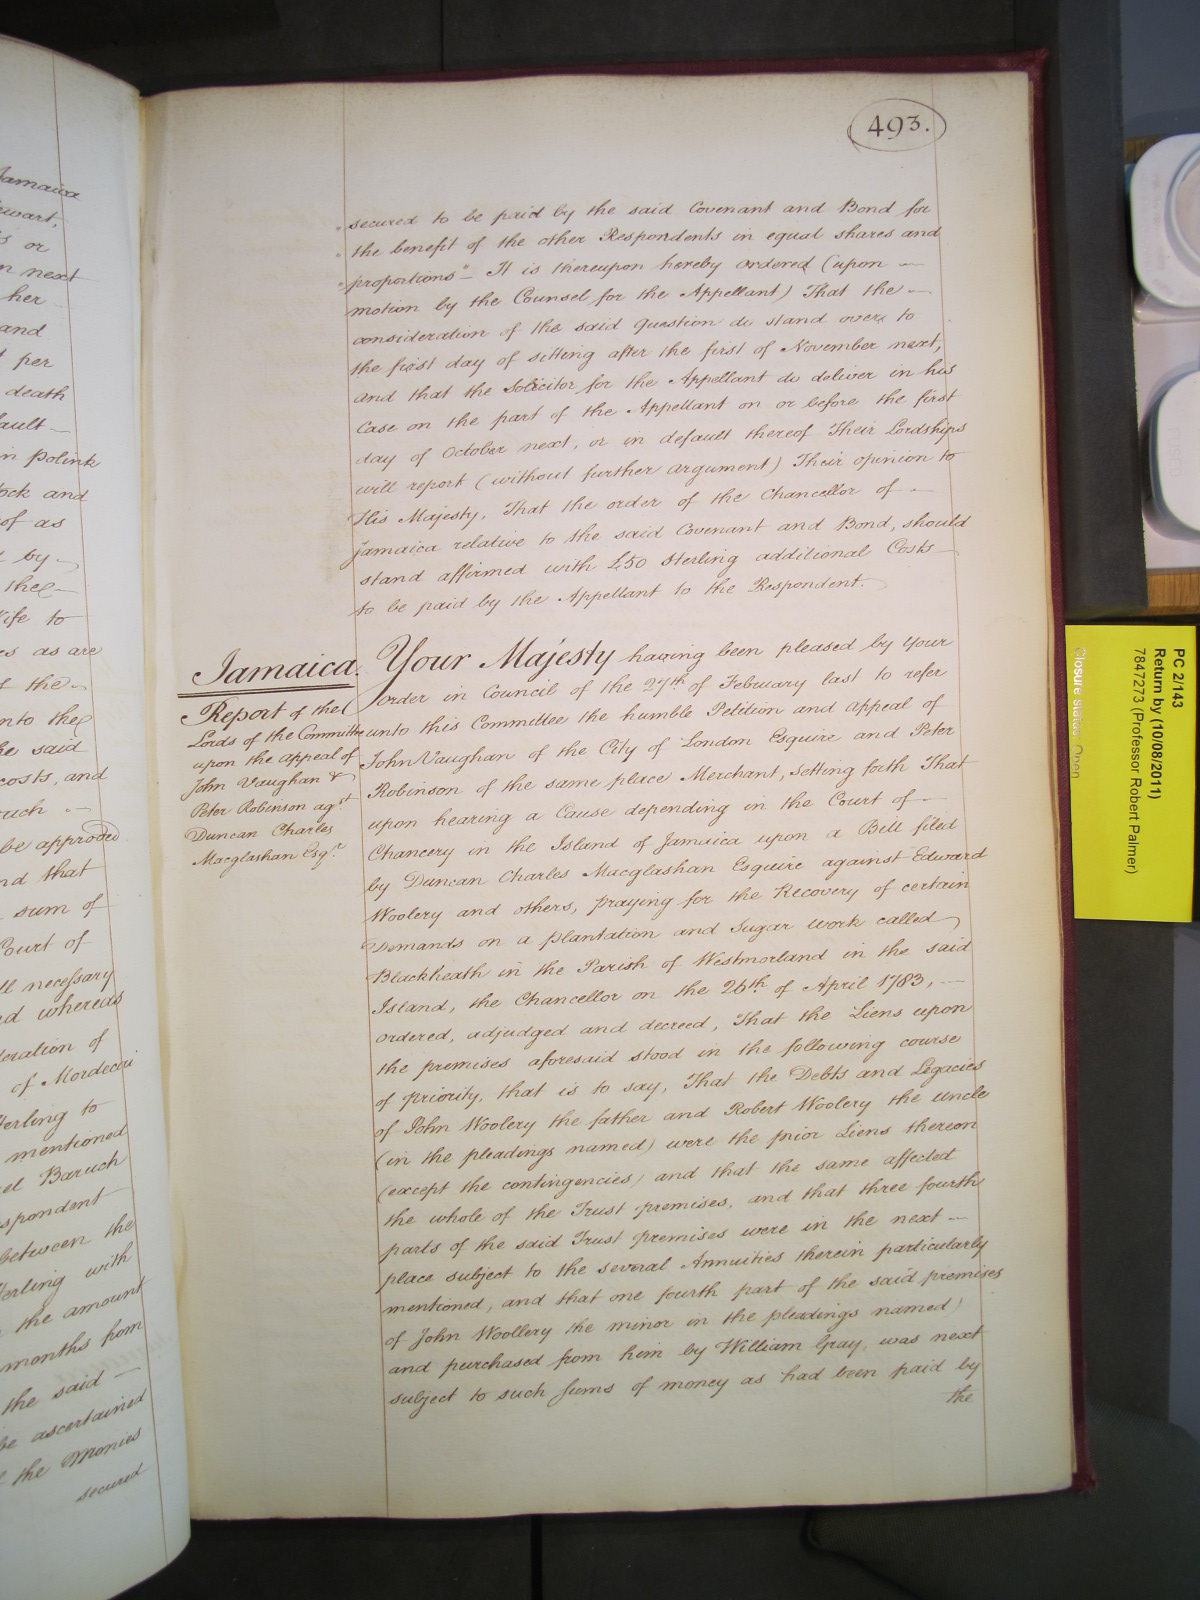 Jamaica
ewart,
s or
n next
her
and
t per
death
ault —
n Polink
ock and
of as
by —
the —
ife to
es as are
f the —
nto the
he said
costs, and
ruch —
be approved
nd that
sum of
Court of
ll necessary
nd whereas
deration of
of Mordecai
terling to
mentioned
el Baruch
spondent
between the
terling with
the amount
months from
the said —
be ascertained
f the Monies
secured
493.
" secured to be paid by the said Covenant and Bond for
" the benefit of the other Respondents in equal shares and
" proportions" — It is thereupon hereby ordered (upon —
motion by the Counsel for the Appellant) That the —
consideration of the said Question do stand over to
the first day of sitting after the first of November next,
and that the Solicitor for the Appellant do deliver in his
Case on the part of the Appellant on or before the first
day of October next, or in default thereof Their Lordships
will report (without further argument) Their opinion to
His Majesty, That the order of the Chancellor of —
Jamaica relative to the said Covenant and Bond, should
stand affirmed with £50 Sterling additional Costs —
to be paid by the Appellant to the Respondent.
Jamaica.
Report of the
Lords of the Committee
upon the appeal of
John Vaughan &
Peter Robinson agst
Duncan Charles
Macglashan Esqr.
Your Majesty having been pleased by Your
Order in Council of the 27th of February last to refer
unto this Committee the humble Petition and Appeal of
John Vaughan of the City of London Esquire and Peter
Robinson of the same place Merchant, setting forth That
upon hearing a Cause depending in the Court of —
Chancery in the Island of Jamaica upon a Bill filed
by Duncan Charles Macglashan Esquire against Edward
Woolery and others, praying for the Recovery of certain
Demands on a plantation and Sugar work called
Blackheath in the Parish of Westmorland in the said
Island, the Chancellor on the 26th of April 1783, —
ordered, adjudged and decreed, That the Liens upon
the premises aforesaid stood in the following course
of priority, that is to say, That the Debts and Legacies
of John Woolery the father and Robert Woolery the uncle
(in the pleadings named) were the prior Liens thereon
(except the contingencies) and that the same affected
the whole of the Trust premises, and that three fourth
parts of the said Trust premises were in the next —
place subject to the several Annuities therein particularly
mentioned, and that one fourth part of the said premises
of John Woollery the minor in the pleadings named)
and purchased from him by William Gray, was next
subject to such Sums of money as had been paid by
the
PC 2/143
Return by (10/08/2011)
7847273 (Professor Robert Palmer)
Closure status: Open